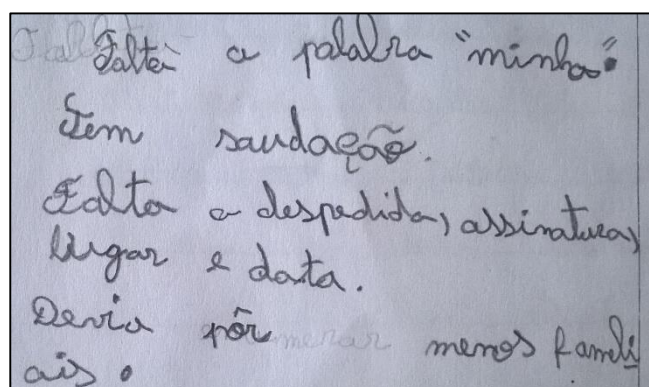 Falta a palabra "minha".
Tem saudação.
Falta a despedida, assinatura,
lugar e data.
Devia pôr menos famili
ais.